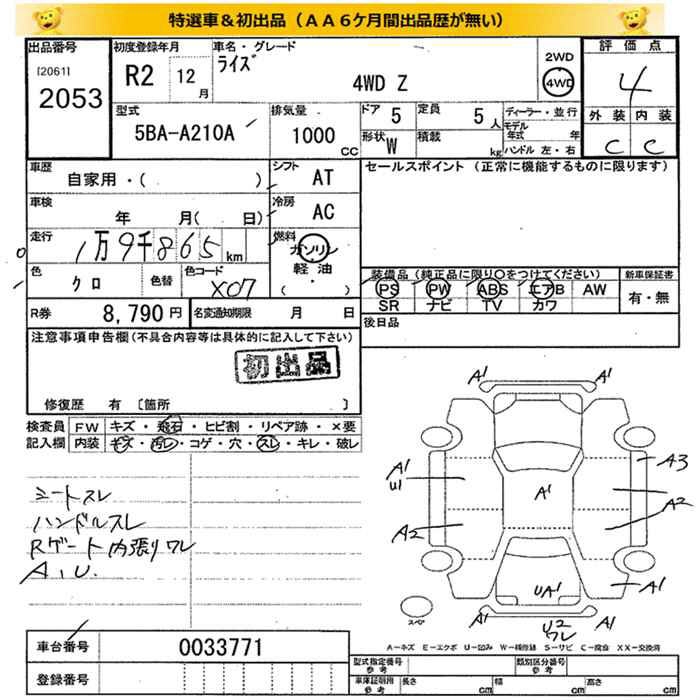 特選車＆初出品（ＡＡ６ケ月間出品歴が無い）
出品番号
[2061]
2053
初度登録年月
R2 12月
車名・グレード
ライズ
4WD Z
2WD
4WD
評価点
4
外装 内装
C C
型式
5BA-A210A
排気量
1000 CC
ドア 5
定員 5人
形状 W
積載 kg
ディーラー・並行
モデル年式 年
ハンドル 左・右
車歴
自家用・( )
シフト AT
車検
年 月( 日)
冷房 AC
走行
1万9千865km
燃料
ガソリン
軽油
(・)
色
クロ
色替
色コード
X07
R券 8,790円
名変通知期限 月 日
セールスポイント（正常に機能するものに限ります）
装備品（純正品に限り○をつけてください）
PS PW ABS エアB AW
SR ナビ TV カワ
新車保証書
有・無
後日品
注意事項申告欄(不具合内容等は具体的に記入して下さい)
初出品
修復歴 有 〔箇所 〕
検査員記入欄
FW キズ・飛石・ヒビ割・リペア跡・×要
内装 キズ・汚レ・コゲ・穴・スレ・キレ・破レ
シートスレ
ハンドルスレ
Rゲート内張りワレ
A,U.
A1 A1
A1
U1
A3
A1
A2
A2
A2
UA1
A1
A1 A1
U2
ワレ
スペア
A－キズ E－エクボ U－凹み W－補修跡 S－サビ C－腐食 XX－交換済
車台番号 0033771
登録番号
型式指定番号
参考
類別区分番号
参考
車庫証明用
参考
長さ cm
幅 cm
高さ cm